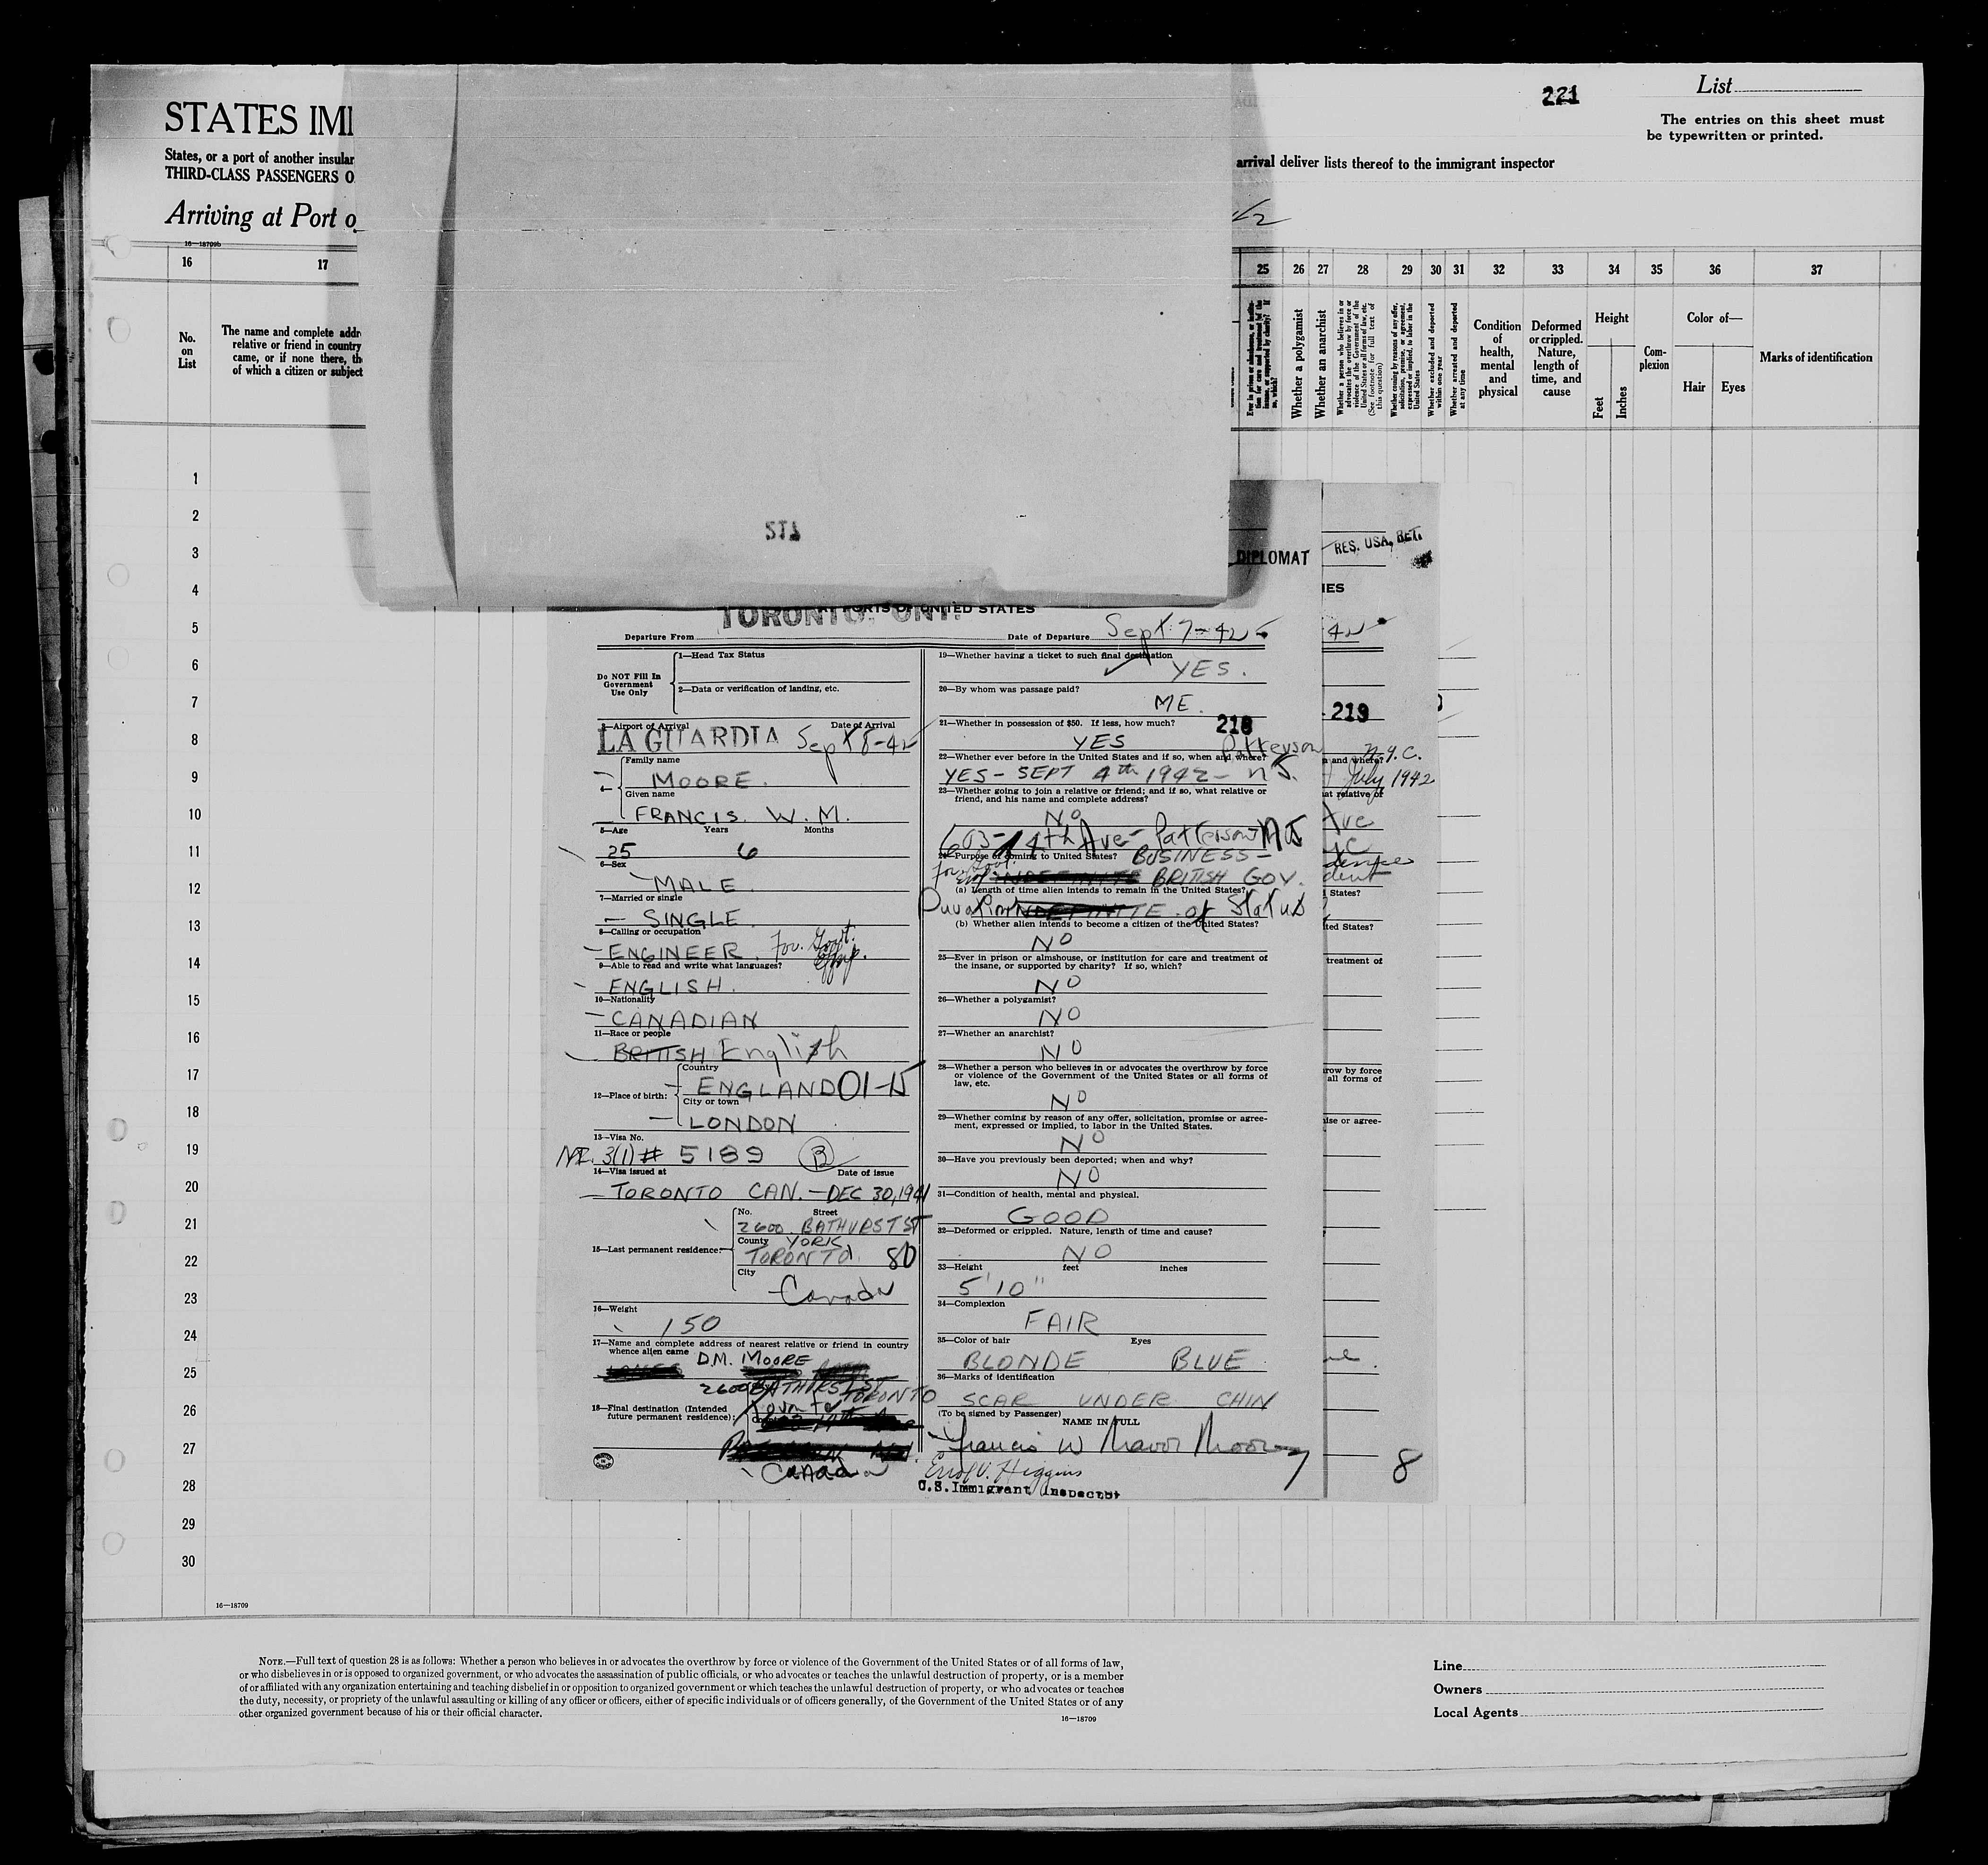 221
List
The entries on this sheet must
be typewritten or printed.
STATES IMI
States, or a port of another insular
THIRD-CLASS PASSENGERS O
arrival deliver lists thereof to the immigrant inspector
Arriving at Port o
16—18709b
16 17 25 26 27 28 29 30 31 32 33 34 35 36 37
No.
on
List
The name and complete addr
relative or friend in country
came, or if none there, th
of which a citizen or subject
Whether a polygamist
Whether an anarchist
Whether a person who believes in or
advocates the overthrow by force or
violence of the Government of the
United States or all forms of law, etc.
(See footnote for full text of
this question)
Whether coming by reasons of any offer,
solicitation, promise, or agreement,
expressed or implied, to labor in the
United States
Whether excluded and deported
within one year
Whether arrested and deported
at any time
Condition
of
health,
mental
and
physical
Deformed
or crippled.
Nature,
length of
time, and
cause
Height
Feet
Inches
Com-
plexion
Color of—
Hair
Eyes
Marks of identification
1
2
3
4
5
6
7
8
9
10
11
12
13
14
15
16
17
18
19
20
21
22
23
24
25
26
27
28
29
30
DIPLOMAT
RES. USA, RET.
IES
PORTS OF UNITED STATES
TORONTO, ONT.
Departure From
Date of Departure Sept. 7-42
Do NOT Fill In
Government
Use Only
1—Head Tax Status
2—Data or verification of landing, etc.
3—Airport of Arrival Date of Arrival
LA GUARDIA Sept 8-42
Family name
MOORE.
Given name
FRANCIS. W. M.
5—Age Years Months
25 6
6—Sex
MALE
7—Married or single
SINGLE
8—Calling or occupation
ENGINEER. For. Govt.
Emp.
9—Able to read and write what languages?
ENGLISH.
10—Nationality
CANADIAN
11—Race or people
BRITISH English
12—Place of birth:
Country
ENGLAND 01-15
City or town
LONDON
13—Visa No.
3(1) # 5189 B
14—Visa issued at Date of issue
TORONTO CAN. — DEC 30, 1941
15—Last permanent residence:
No. Street
2600 BATHURST ST
County YORK
TORONTO. 80
City
Canada
16—Weight
150
17—Name and complete address of nearest relative or friend in country
whence alien came D.M. MOORE
2600 BATHURST ST
TORONTO
18—Final destination (Intended
future permanent residence):
Toronto
Canada
19—Whether having a ticket to such final destination
YES.
20—By whom was passage paid?
ME.
21—Whether in possession of $50. If less, how much?
218
YES
22—Whether ever before in the United States and if so, when and where?
Patterson
YES — SEPT 4th 1942 — N.J.
23—Whether going to join a relative or friend; and if so, what relative or
friend, and his name and complete address?
NO
603-14th Ave- Patterson NJ
24—Purpose of coming to United States? BUSINESS —
For. Govt.
Emp. INDEFINITE BRITISH GOV.
(a) Length of time alien intends to remain in the United States?
Duration INDEFINITE of Status
(b) Whether alien intends to become a citizen of the United States?
NO
25—Ever in prison or almshouse, or institution for care and treatment of
the insane, or supported by charity? If so, which?
NO
26—Whether a polygamist?
NO
27—Whether an anarchist?
NO
28—Whether a person who believes in or advocates the overthrow by force
or violence of the Government of the United States or all forms of
law, etc.
NO
29—Whether coming by reason of any offer, solicitation, promise or agree-
ment, expressed or implied, to labor in the United States.
NO
30—Have you previously been deported; when and why?
NO
31—Condition of health, mental and physical.
GOOD
32—Deformed or crippled. Nature, length of time and cause?
NO
33—Height feet inches
5' 10"
34—Complexion
FAIR
35—Color of hair Eyes
BLONDE BLUE
36—Marks of identification
SCAR UNDER CHIN
(To be signed by Passenger)
NAME IN FULL
Francis W Mavor Moore
7
Errol V. Higgins
U.S. Immigrant Inspector
219
N.Y.C.
and where?
July 1942
at relative of
Ave
States?
ted States?
treatment of
row by force
all forms of
ise or agree-
8
16—18709
NOTE.—Full text of question 28 is as follows: Whether a person who believes in or advocates the overthrow by force or violence of the Government of the United States or of all forms of law,
or who disbelieves in or is opposed to organized government, or who advocates the assassination of public officials, or who advocates or teaches the unlawful destruction of property, or is a member
of or affiliated with any organization entertaining and teaching disbelief in or opposition to organized government or which teaches the unlawful destruction of property, or who advocates or teaches
the duty, necessity, or propriety of the unlawful assaulting or killing of any officer or officers, either of specific individuals or of officers generally, of the Government of the United States or of any
other organized government because of his or their official character.
16—18709
Line
Owners
Local Agents